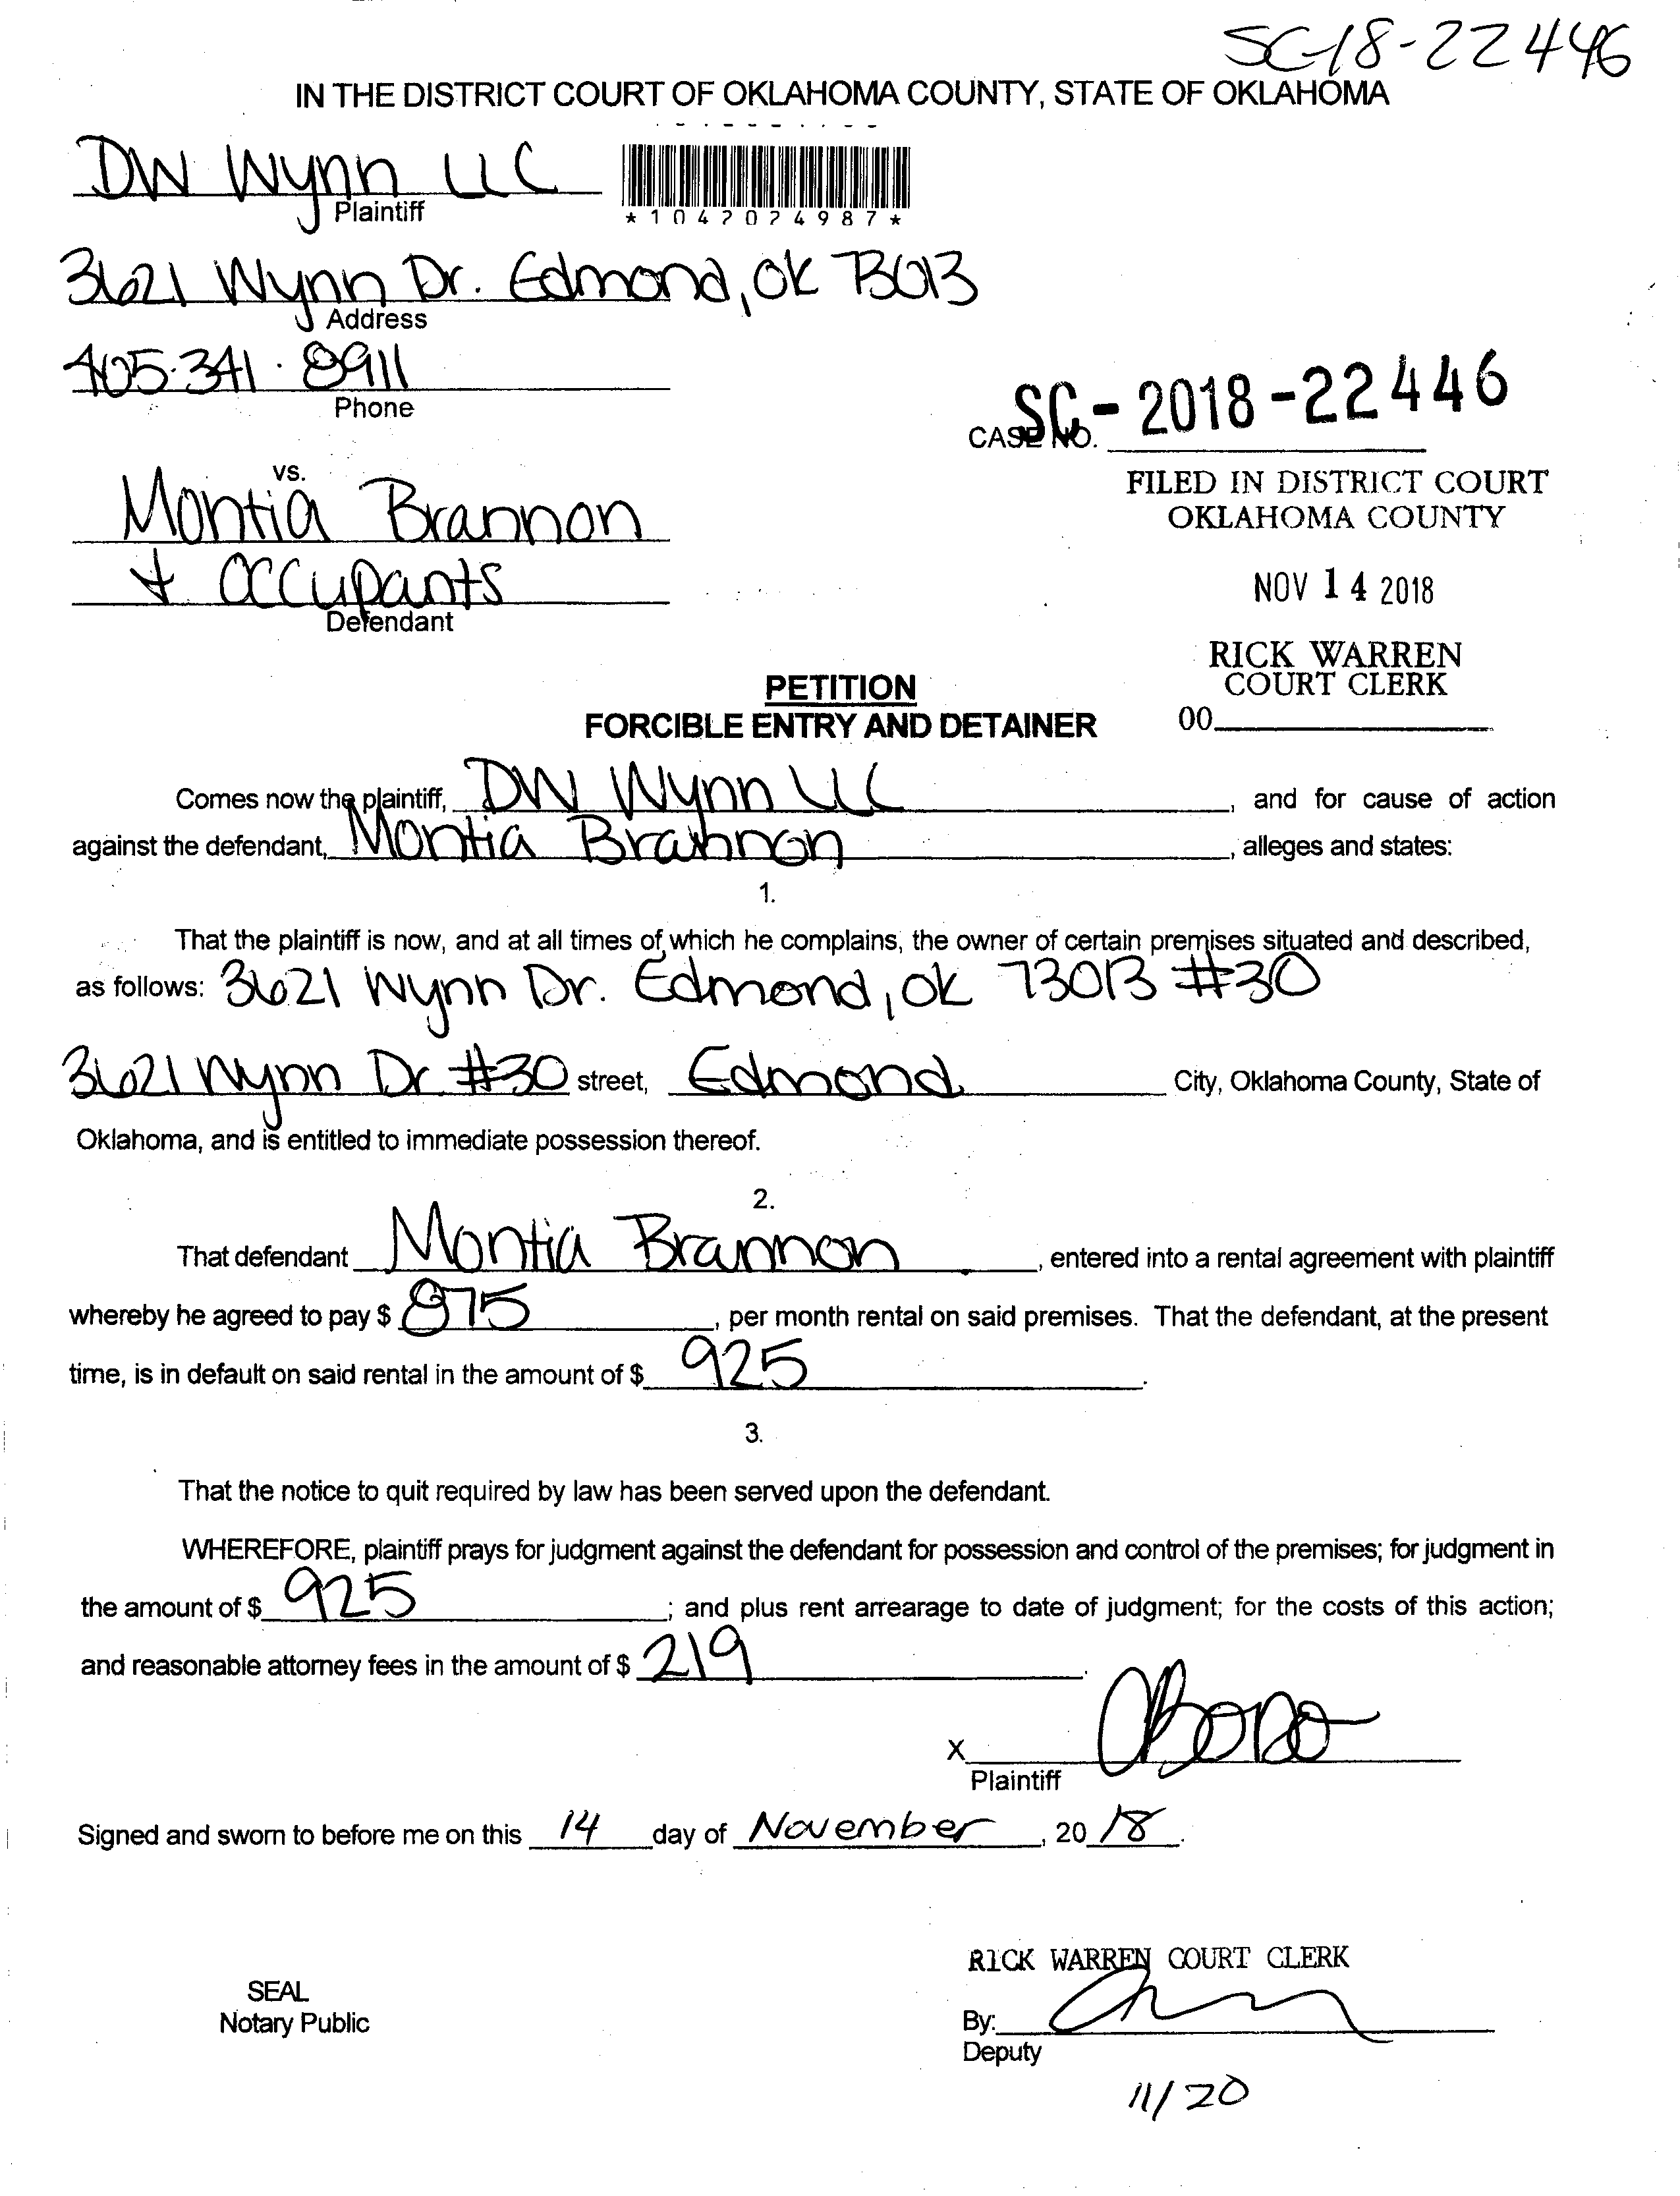 SC-18-22446
IN THE DISTRICT COURT OF OKLAHOMA COUNTY, STATE OF OKLAHOMA
DW Wynn LLC
Plaintiff
*1042024987*
3621 Wynn Dr. Edmond, OK 73013
Address
405-341-8911
Phone
CASE NO. SC-2018-22446
vs.
Montia Brannon
+ Occupants
Defendant
FILED IN DISTRICT COURT
OKLAHOMA COUNTY
NOV 14 2018
RICK WARREN
COURT CLERK
00
PETITION
FORCIBLE ENTRY AND DETAINER
Comes now the plaintiff, DW Wynn LLC, and for cause of action
against the defendant, Montia Brannon, alleges and states:
1.
That the plaintiff is now, and at all times of which he complains, the owner of certain premises situated and described,
as follows: 3621 Wynn Dr. Edmond, OK 73013 #30
3621 Wynn Dr #30 street, Edmond City, Oklahoma County, State of
Oklahoma, and is entitled to immediate possession thereof.
2.
That defendant Montia Brannon, entered into a rental agreement with plaintiff
whereby he agreed to pay $ 875, per month rental on said premises. That the defendant, at the present
time, is in default on said rental in the amount of $ 925.
3.
That the notice to quit required by law has been served upon the defendant.
WHEREFORE, plaintiff prays for judgment against the defendant for possession and control of the premises; for judgment in
the amount of $ 925; and plus rent arrearage to date of judgment; for the costs of this action;
and reasonable attorney fees in the amount of $ 219.
X
Plaintiff
Signed and sworn to before me on this 14 day of November, 2018.
RICK WARREN COURT CLERK
SEAL
Notary Public
By:
Deputy
11/20